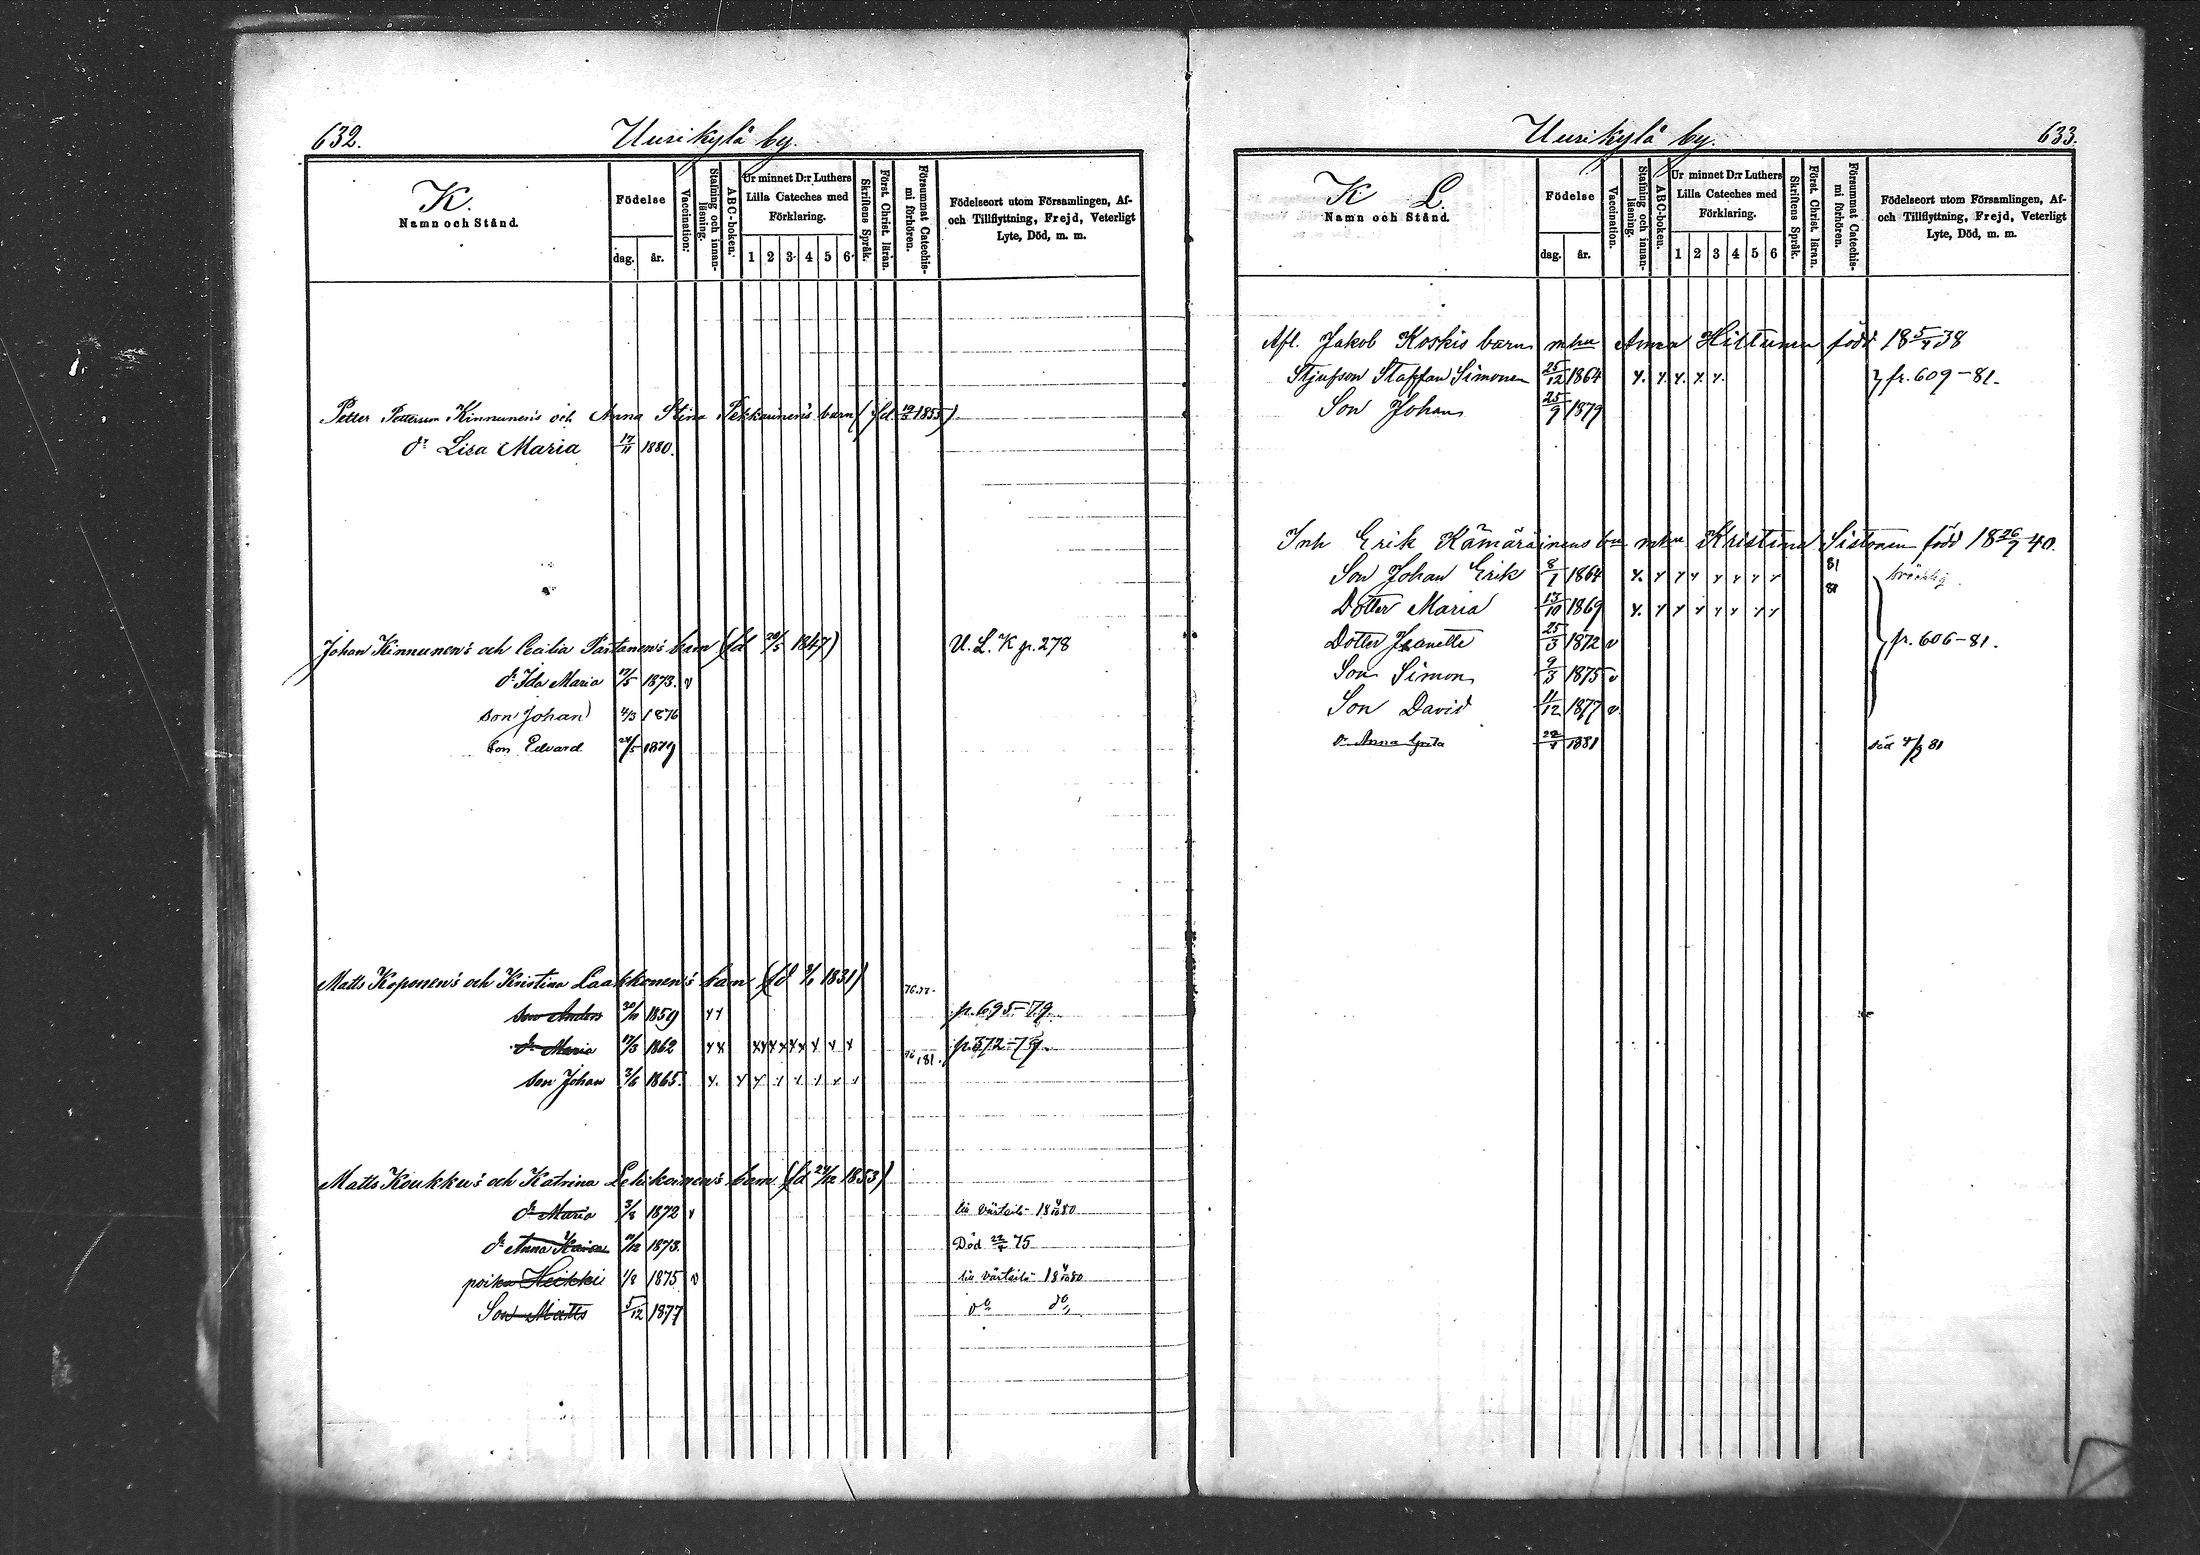 632. Uurikylä by.
K.
Namn och Stånd.
Födelse
dag. år.
Vaccination.
Stafning och innan-
läsning.
ABC-boken.
Ur minnet D:r Luthers
Lilla Cateches med
Förklaring.
1 2 3 4 5 6
Skriftens Språk.
Först. Christ. läran.
Försummat Catechis-
mi förhören.
Födelseort utom Församlingen, Af-
och Tillflyttning, Frejd, Veterligt
Lyte, Död, m. m.
Petter Petterson Kinnunen's och Anna Stina Pekkarinen's barn (fd. 1855)
dr Lisa Maria 17/11 1880.
Johan Kinnunen's och Cecilia Partanen's barn (fd 20/5 1847) U. L. K p. 278
dr Ida Maria 17/5 1873. v
son Johan 4/3 1876
son Edvard 24/5 1879
Matts Koponen's och Kristina Laakkonen's barn (fd 1831)
76.77.
son Anders 30/11 1859 x x p. 695-79.
dr Maria 17/3 1862 x x x x x x x x x x p. 572-79.
76 81.
son Johan 3/6 1865. x. x x x x x x x
Matts Koukku's och Katrina Lehikoinen's barn (fd 24/12 1853)
dr Maria 3/8 1872 v 80
dr Anna Kaisa 1873. Död 75
poika Heikki 1/8 1875 v 80
Son Matts 5/12 1877 do do
Uurikylä by. 633.
K L.
Namn och Stånd.
Födelse
dag. år.
Vaccination.
Stafning och innan-
läsning.
ABC-boken.
Ur minnet D:r Luthers
Lilla Cateches med
Förklaring.
1 2 3 4 5 6
Skriftens Språk.
Först. Christ. läran.
Försummat Catechis-
mi förhören.
Födelseort utom Församlingen, Af-
och Tillflyttning, Frejd, Veterligt
Lyte, Död, m. m.
Afl. Jakob Koskis barn Anna Hiltunen född 18 5/4 38
Stjufson Staffan Simonen 25/12 1864 x. x. x. x x. } fr. 609-81.
Son Johan 25/9 1879
Inh Erik Kämäräinens Kristina Sistonen född 18 26/7 40.
Son Johan Erik 8/1 1864 x. x x x x x x x 81
Dotter Maria 13/10 1869 x. x x x x x x x 81
Dotter Jeanette 25/3 1872 v } fr. 606-81.
Son Simon 9/3 1875 v
Son David 11/12 1877 v.
dr Anna Greta 22/4 1881 död 81